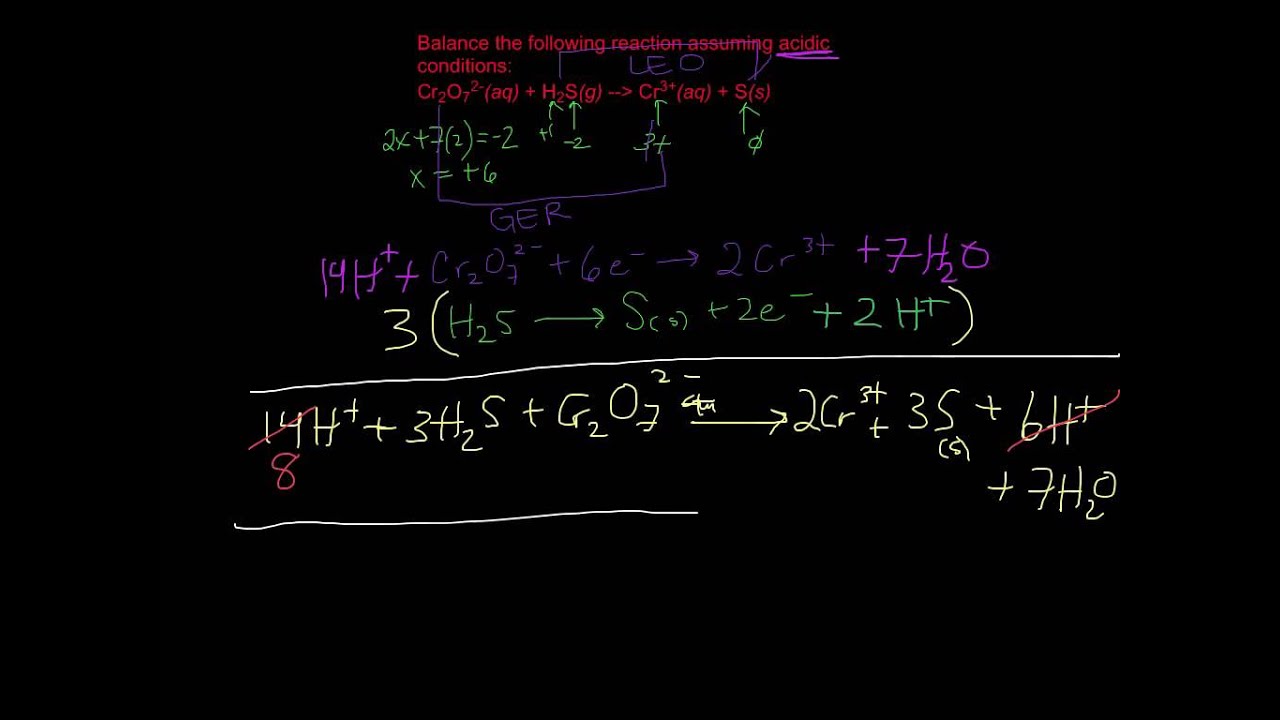 Balance the following reaction assuming acidic
conditions:
LEO
Cr₂O₇²⁻(aq) + H₂S(g) --> Cr³⁺(aq) + S(s)
2x+7(2)=-2 +1 -2 3+ ϕ
x = +6
GER
14H⁺ + Cr₂O₇²⁻ + 6e⁻ → 2Cr³⁺ + 7H₂O
3(H₂S → S(s) + 2e⁻ + 2H⁺)
14H⁺ + 3H₂S + Cr₂O₇²⁻ → 2Cr³⁺ + 3S(s) + 6H⁺
8 + 7H₂O